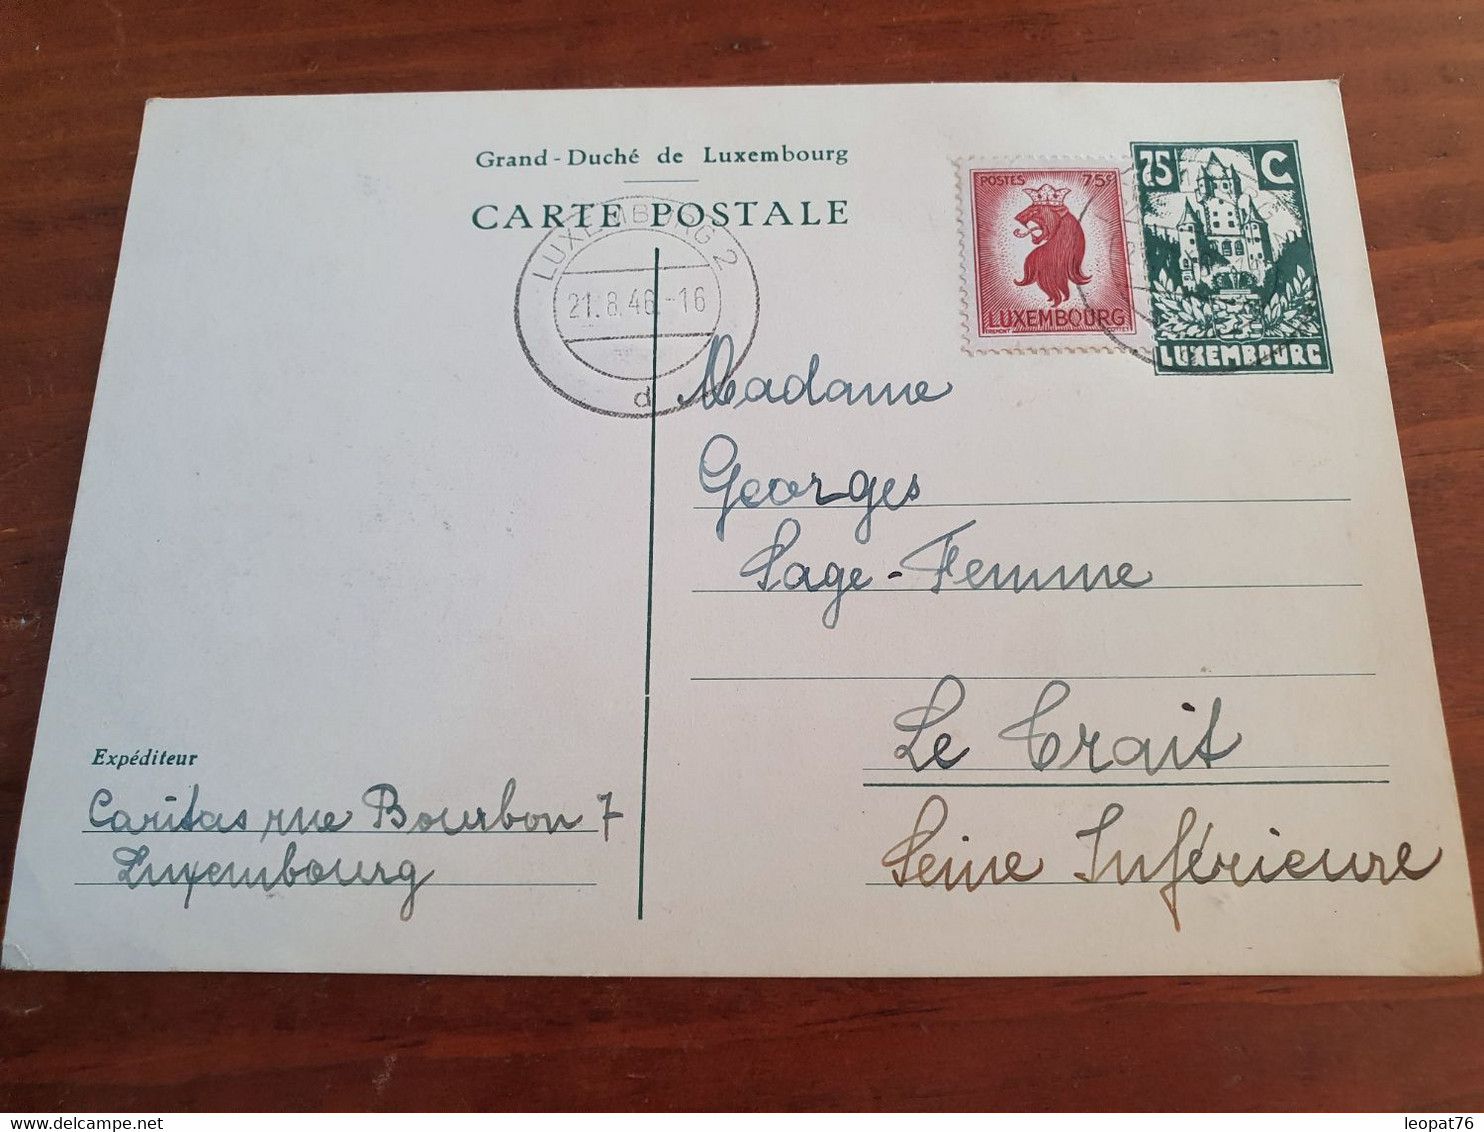 Grand-Duché de Luxembourg
CARTE POSTALE
LUXEMBURG 2
21.8.46.-16
d
POSTES 75c
LUXEMBOURG
75 C
LUXEMBOURG
Madame
Georges
Sage-Femme
Le Trait
Seine Inférieure
Expéditeur
Caritas rue Bourbon 7
Luxembourg
leopat76